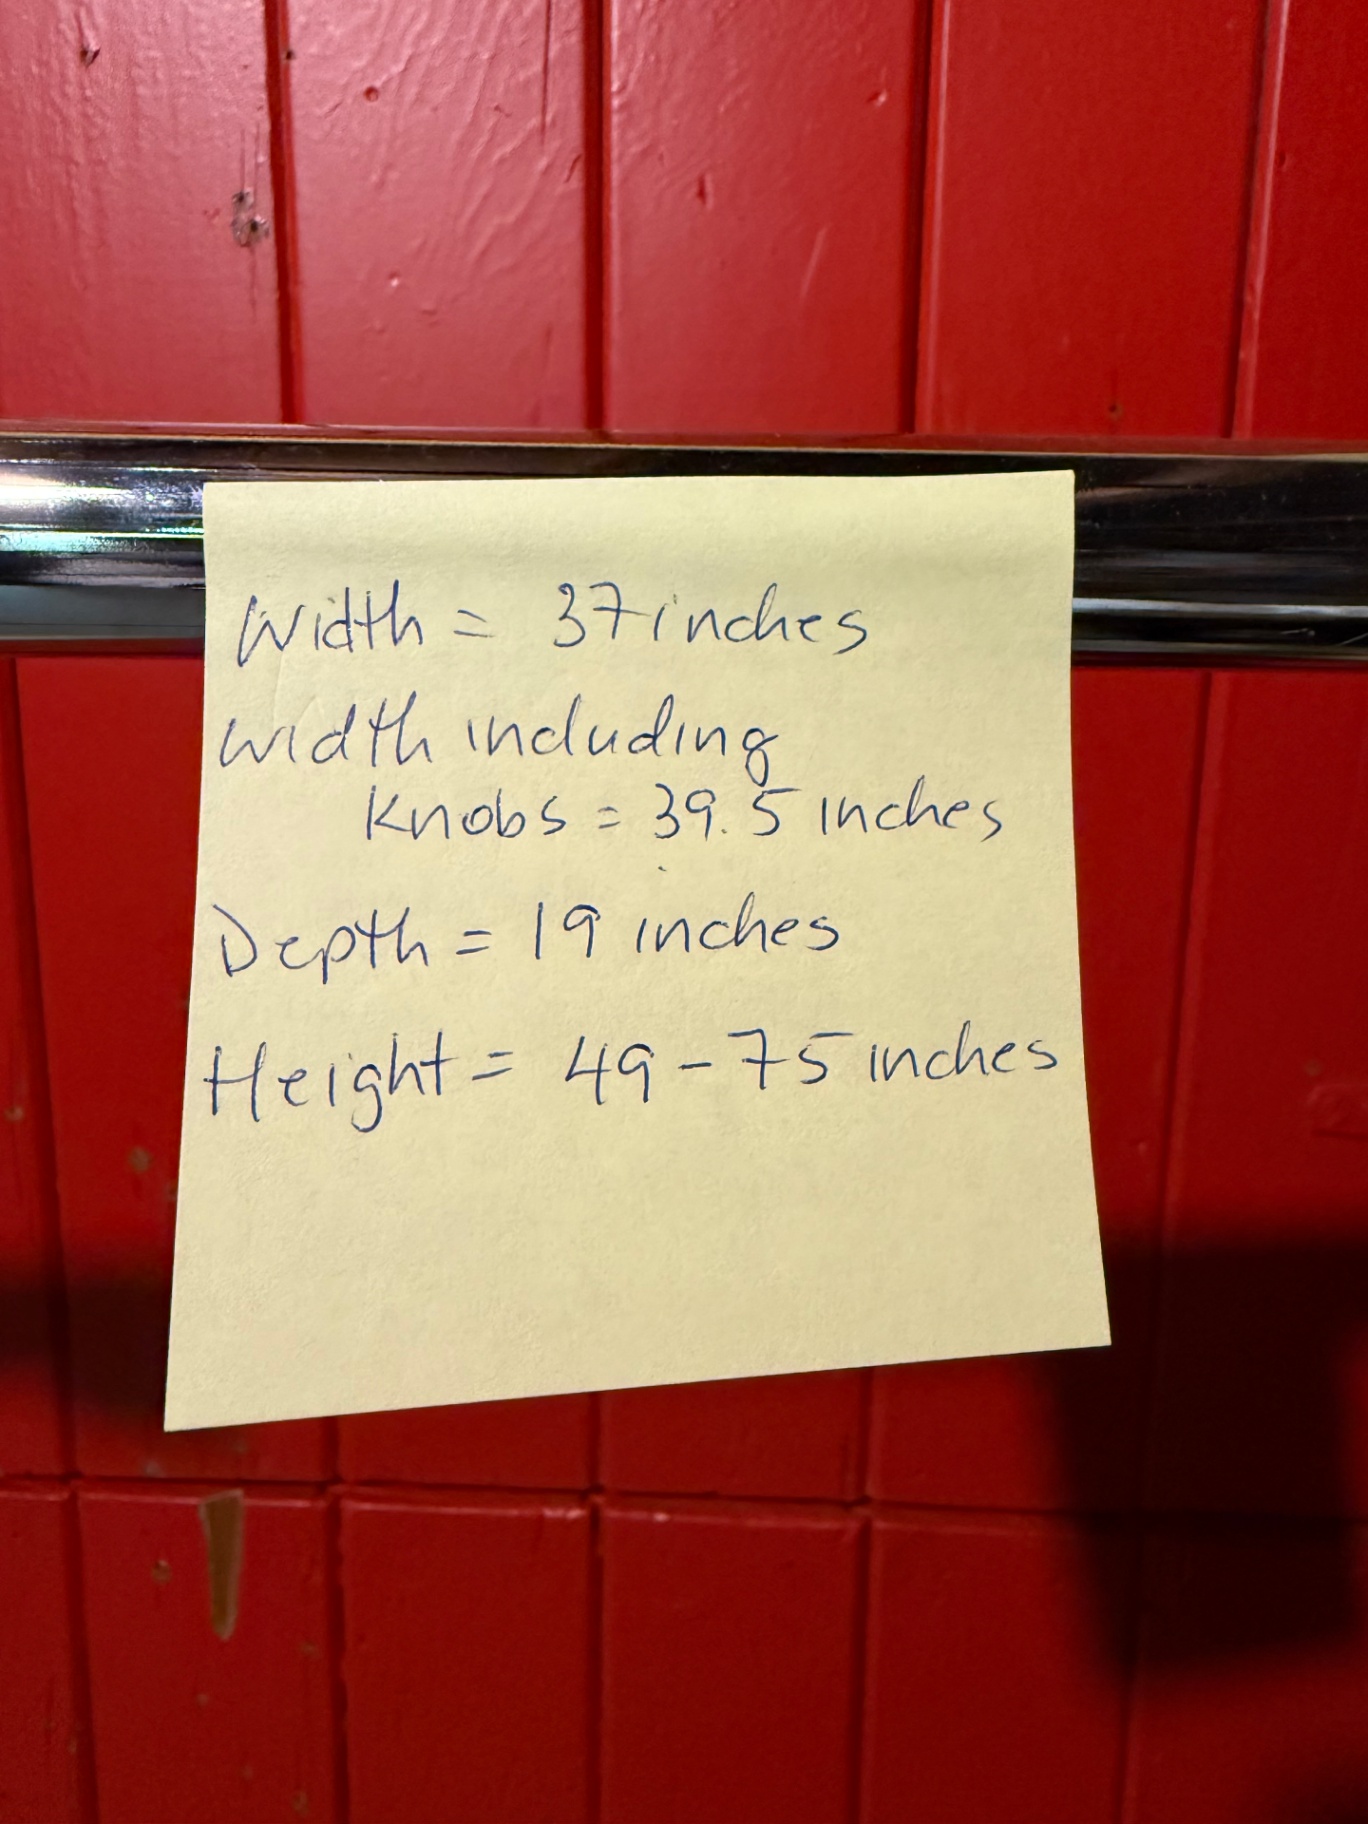 Width = 37 inches
Width including
Knobs = 39.5 inches
Depth = 19 inches
Height = 49 - 75 inches